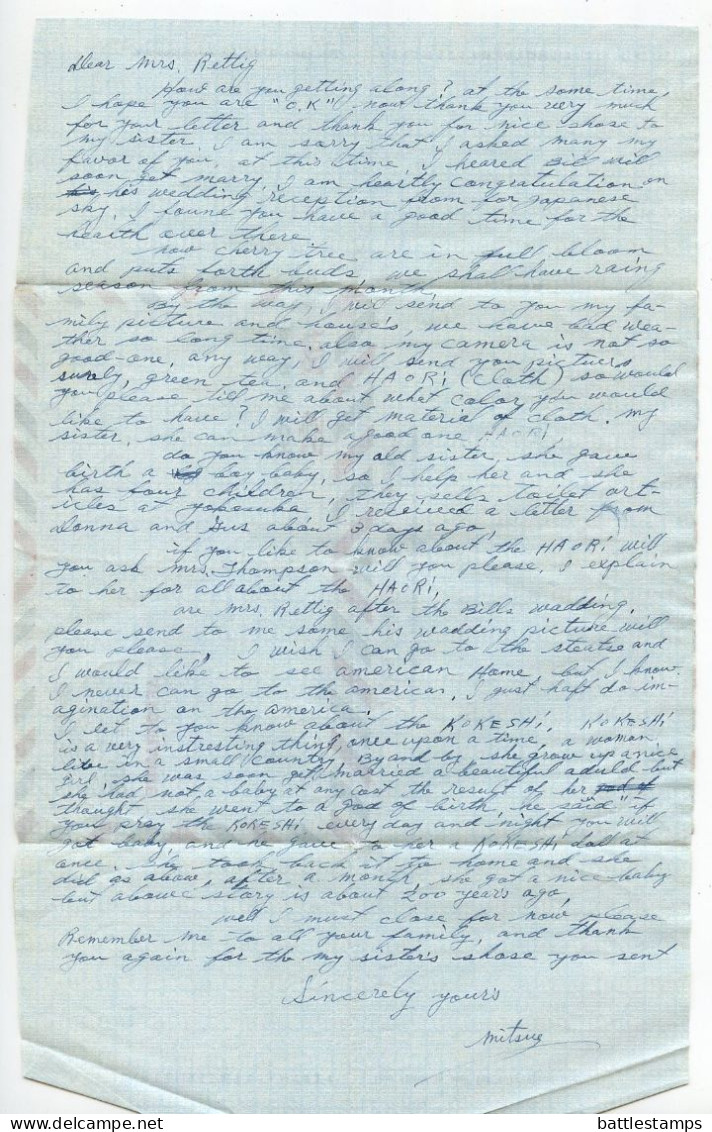 Dear Mrs. Rettig
How are you getting along? at the some time,
I hope you are "O.K" now thank you very much
for your letter and thank you for nice shose to
my sister, I am sarry that I asked many my
favor of you, at this time I heared Bill will
soon get marry, I am heartly congratulation on
his wedding reception from for Japanese
sky, I found you have a good time for the
health over there
now cherry tree are in full bloom
and puts forth buds we shall have raing
season from this month
By the way, I will send to you my fa-
mily picture and house's, we have bad wea-
ther so long time, also my camera is not so
good-one, any way, I will send you pictures
surely, green tea, and HAORi (cloth) so would
you please till me about what color you would
like to have? I will get material of cloth. my
sister, she can make a good one HAORi,
do you know my old sister, she gave
birth a boy baby, so I help her and she
has four children, they sells toilet art-
icles at yokosuka, I received a letter from
Donna and Gus about 3 days ago,
if you like to know about the HAORi will
you ask Mrs. Thompson will you please, I explain
to her for all about the HAORi,
are Mrs. Rettig after the Bills wadding,
please send to me some his wadding picture will
you please, I wish I can go to the and
I would like to see american Home but I know
I never can go to the american, I just haft do im-
agination on the america.
I let to you know about the KOKESHi, KOKESHi
is a very instresting thing, once upon a time, a woman
live in a small country By and by she grow up a nice
girl she was soon get married a beautiful but
she had not a baby at any cost the result of her
thaught she went to a god of birth, he said "if
you pray the KOKESHi every day and night you will
got baby, and he gave to her a KOKESHi doll at
once. she took back it to home and she
did as above, after a month she got a nice baby
but above story is about 200 years ago,
well I must close for now please
Remember me to all your family, and thank
you again for the my sister's shose you sent
Sincerely yours
Mitsue
battlestamps